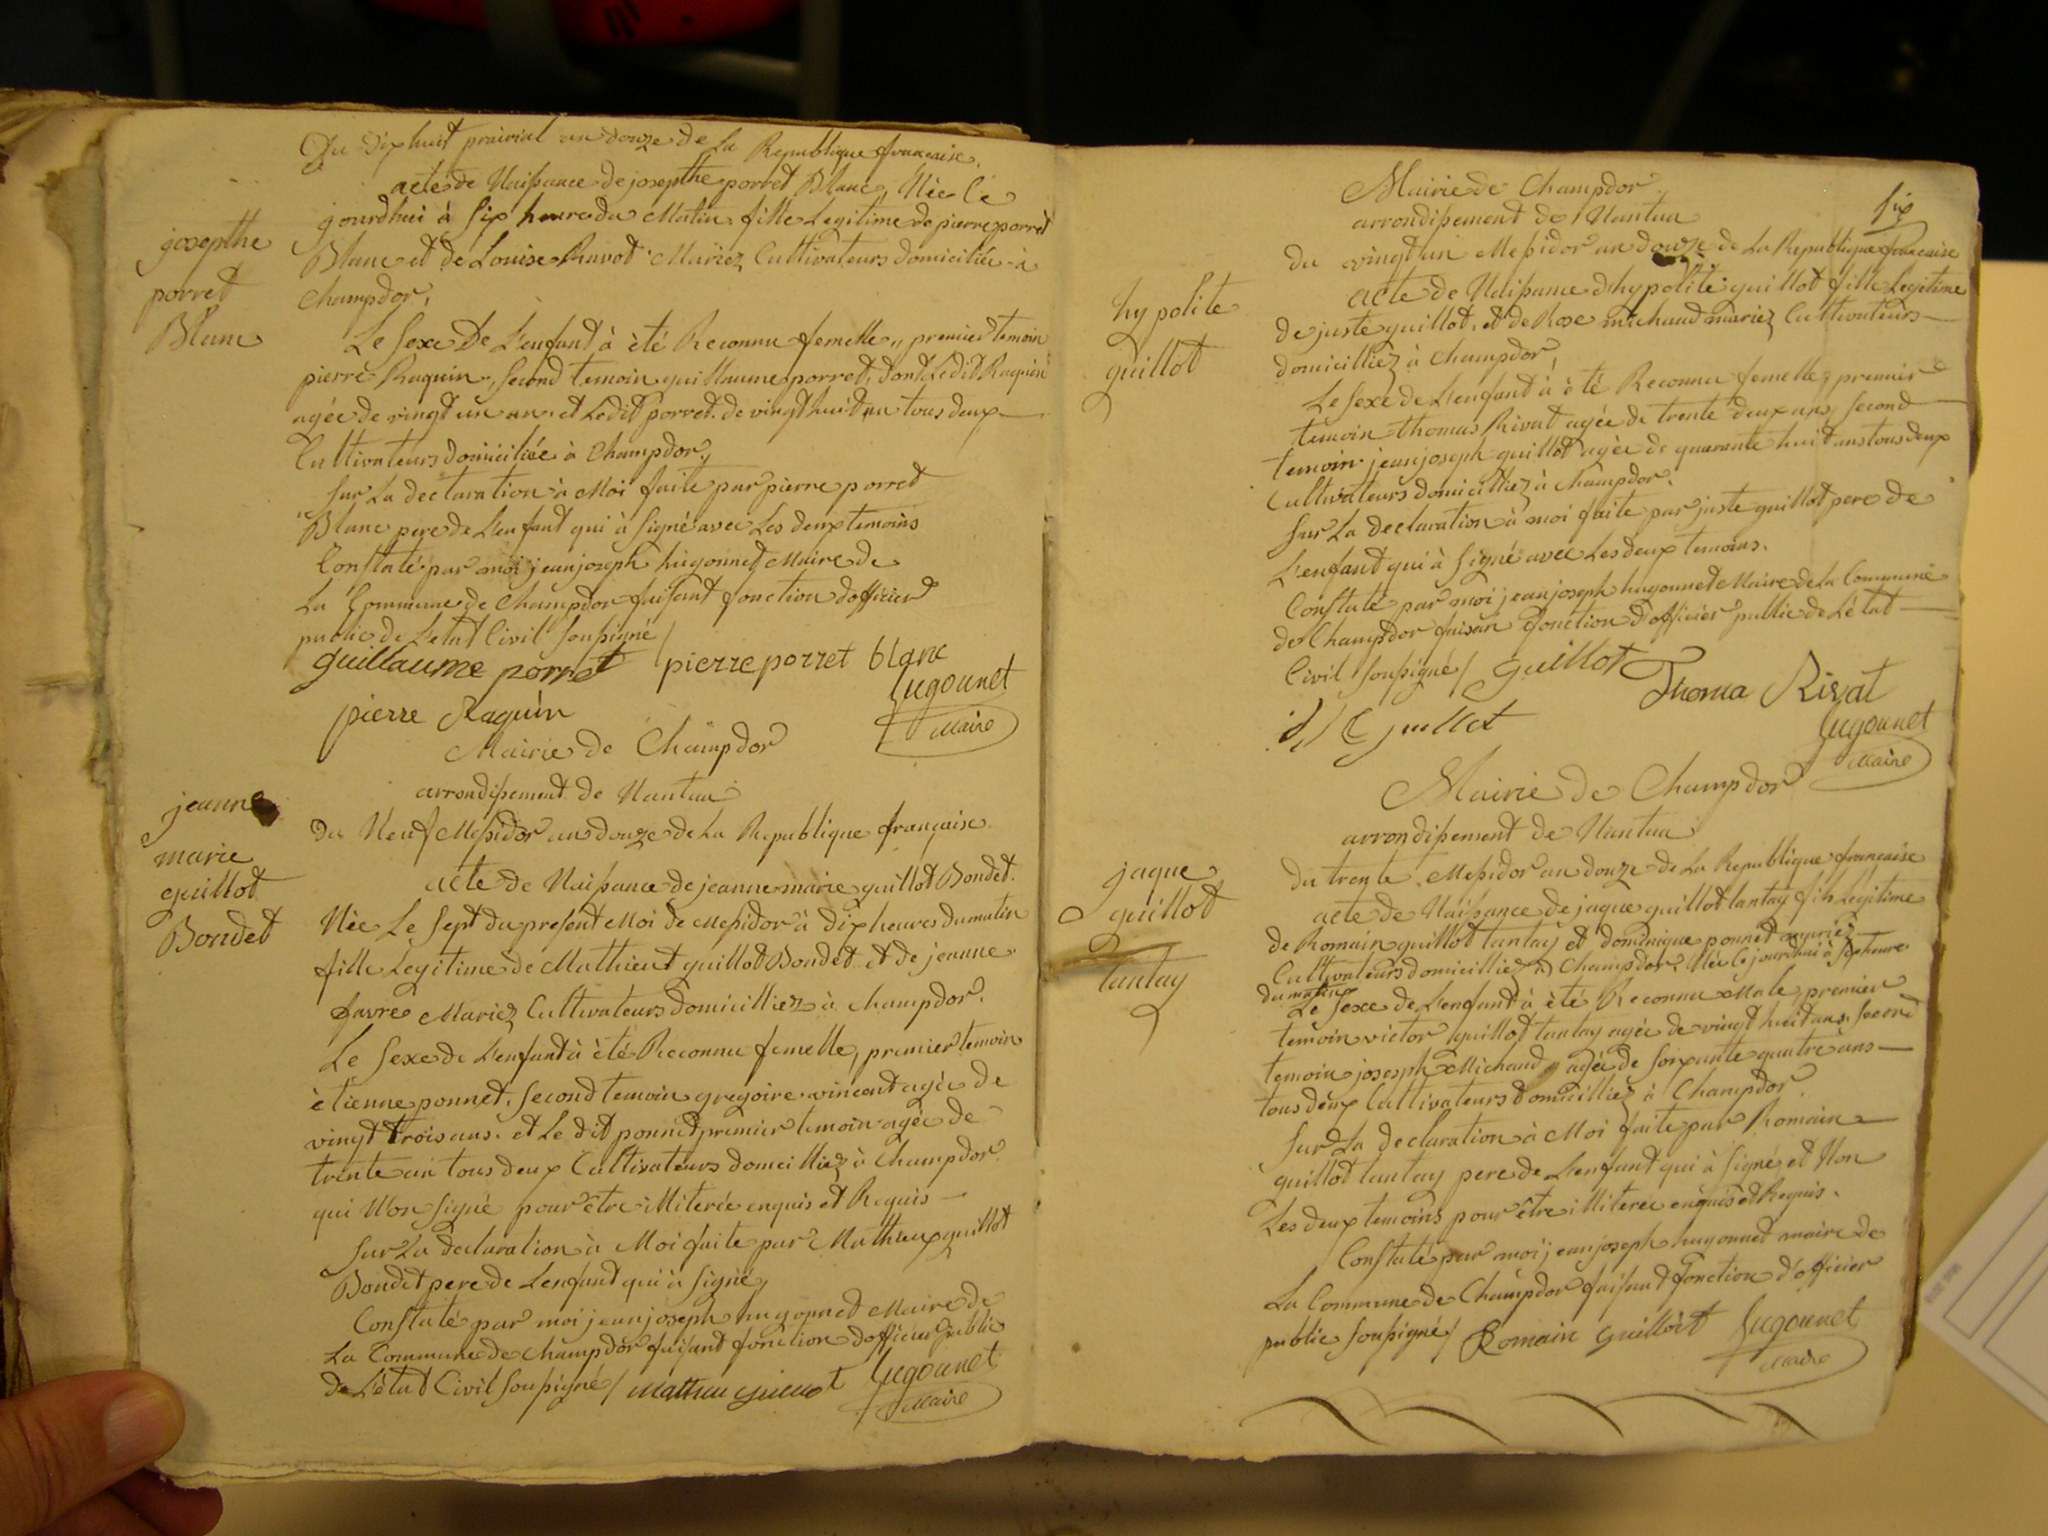 Du dixhuit prairial an douze de La Republique francaise.
acte de Naissance de josepthe porret Blanc, Née Ce
jourdhui à six heure du Matin, fille Legitime de pierre porret
Blanc et de Louise Ravot Mariez Cultivateurs domiciliée à
Champdor,
josepthe
porret
Blanc
Le Sexe De L'enfant à èté Reconnu femelle, premier temoin
pierre Raquin, Second temoin guillaume porret, dont Ledit Raquin
agée de vingt un an, et Ledit porret de vingt huit an tous deux
Cultivateurs domiciliée à Champdor,
Sur La declaration à Moi faite par pierre porret
Blanc pere de L'enfant qui à Signé avec Les deux temoins
Constaté par moi jean joseph hugonnet Maire de
La Commune de Champdor faisant fonction dofficier
public de L'etat Civil Soussigné /
guillaume porret pierre porret blanc
pierre Raquin hugonnet
Maire
Mairie de Champdor
arrondissement de Nantua
jeanne
marie
guillot
Bondet
du Neuf Messidor an douze de La Republique française
acte de Naissance de jeanne marie guillot Bondet.
Née Le Sept du present Moi de Messidor à dix heures du matin
fille Legitime de Mathieut guillot Bondet et de jeanne
favre Mariez Cultivateurs domicilliez à Champdor.
Le Sexe de L'enfant à èté Reconnu femelle, premier temoin
ètienne ponnet, Second temoin gregoire vincent agée de
vingt trois ans, et Le dit ponnet premier temoin agée de
trente an tous deux Cultivateurs domicilliez à Champdor
qui N'on Signé pour être illiterée enquis et Requis
Sur La declaration à Moi faite par Mathieux guillot
Bondet pere de L'enfant qui à Signé,
Constaté par moi jean joseph hugonnet Maire de
La Commune de Champdor faisant fonction d'officier public
de L'état Civil Soussigné / Mathieu guillot hugonnet
Maire
Six
Mairie de Champdor
arrondissement de Nantua
du vingt un Messidor an douze de La Republique francaise
acte de Naissance d'hypolite guillot fille Legitime
de juste guillot, et de Rose michaud mariez Cultivateurs
domicilliez à Champdor,
hypolite
guillot
Le Sexe de L'enfant à èté Reconnu femelle, premier
temoin thomas Rivat agée de trente deux ans, Second
temoin jean joseph guillot agée de quarante huit ans tous deux
Cultivateurs domicilliez à Champdor.
Sur La declaration à moi faite par juste guillot pere de
L'enfant qui à Signé avec Les deux temoins.
Constaté par moi jean joseph hugonnet Maire de La Commune
de Champdor faisan fonction d'officier public de L'état
Civil Soussigné / guillot Thoma Rivat
guillot hugonnet
Maire
Mairie de Champdor
arrondissement de Nantua
jaque
guillot
tantay
du trente Messidor an douze de La Republique francaise
acte de Naissance de jaque guillot tantay fils Legitime
de Romain guillot tantay et dominique ponnet mariez
Cultivateurs domicilliez à Champdor, Née Ce jourdhui à Six heure
du matin
Le Sexe de L'enfant à èté Reconnu Male, premier
temoin victor guillot tantay agée de vingt huit ans, Second
temoin joseph Michaud, agée de soixante quatre ans
tous deux Cultivateurs domicilliez à Champdor.
Sur La declaration à Moi faite par Romain
guillot tantay pere de L'enfant qui à Signé, et Non
Les deux temoins pour être illiterée enquis et Requis.
Constaté par moi jean joseph hugonnet maire de
La Commune de Champdor faisant fonction d'officier
public Soussigné / Romain guillot hugonnet
Maire